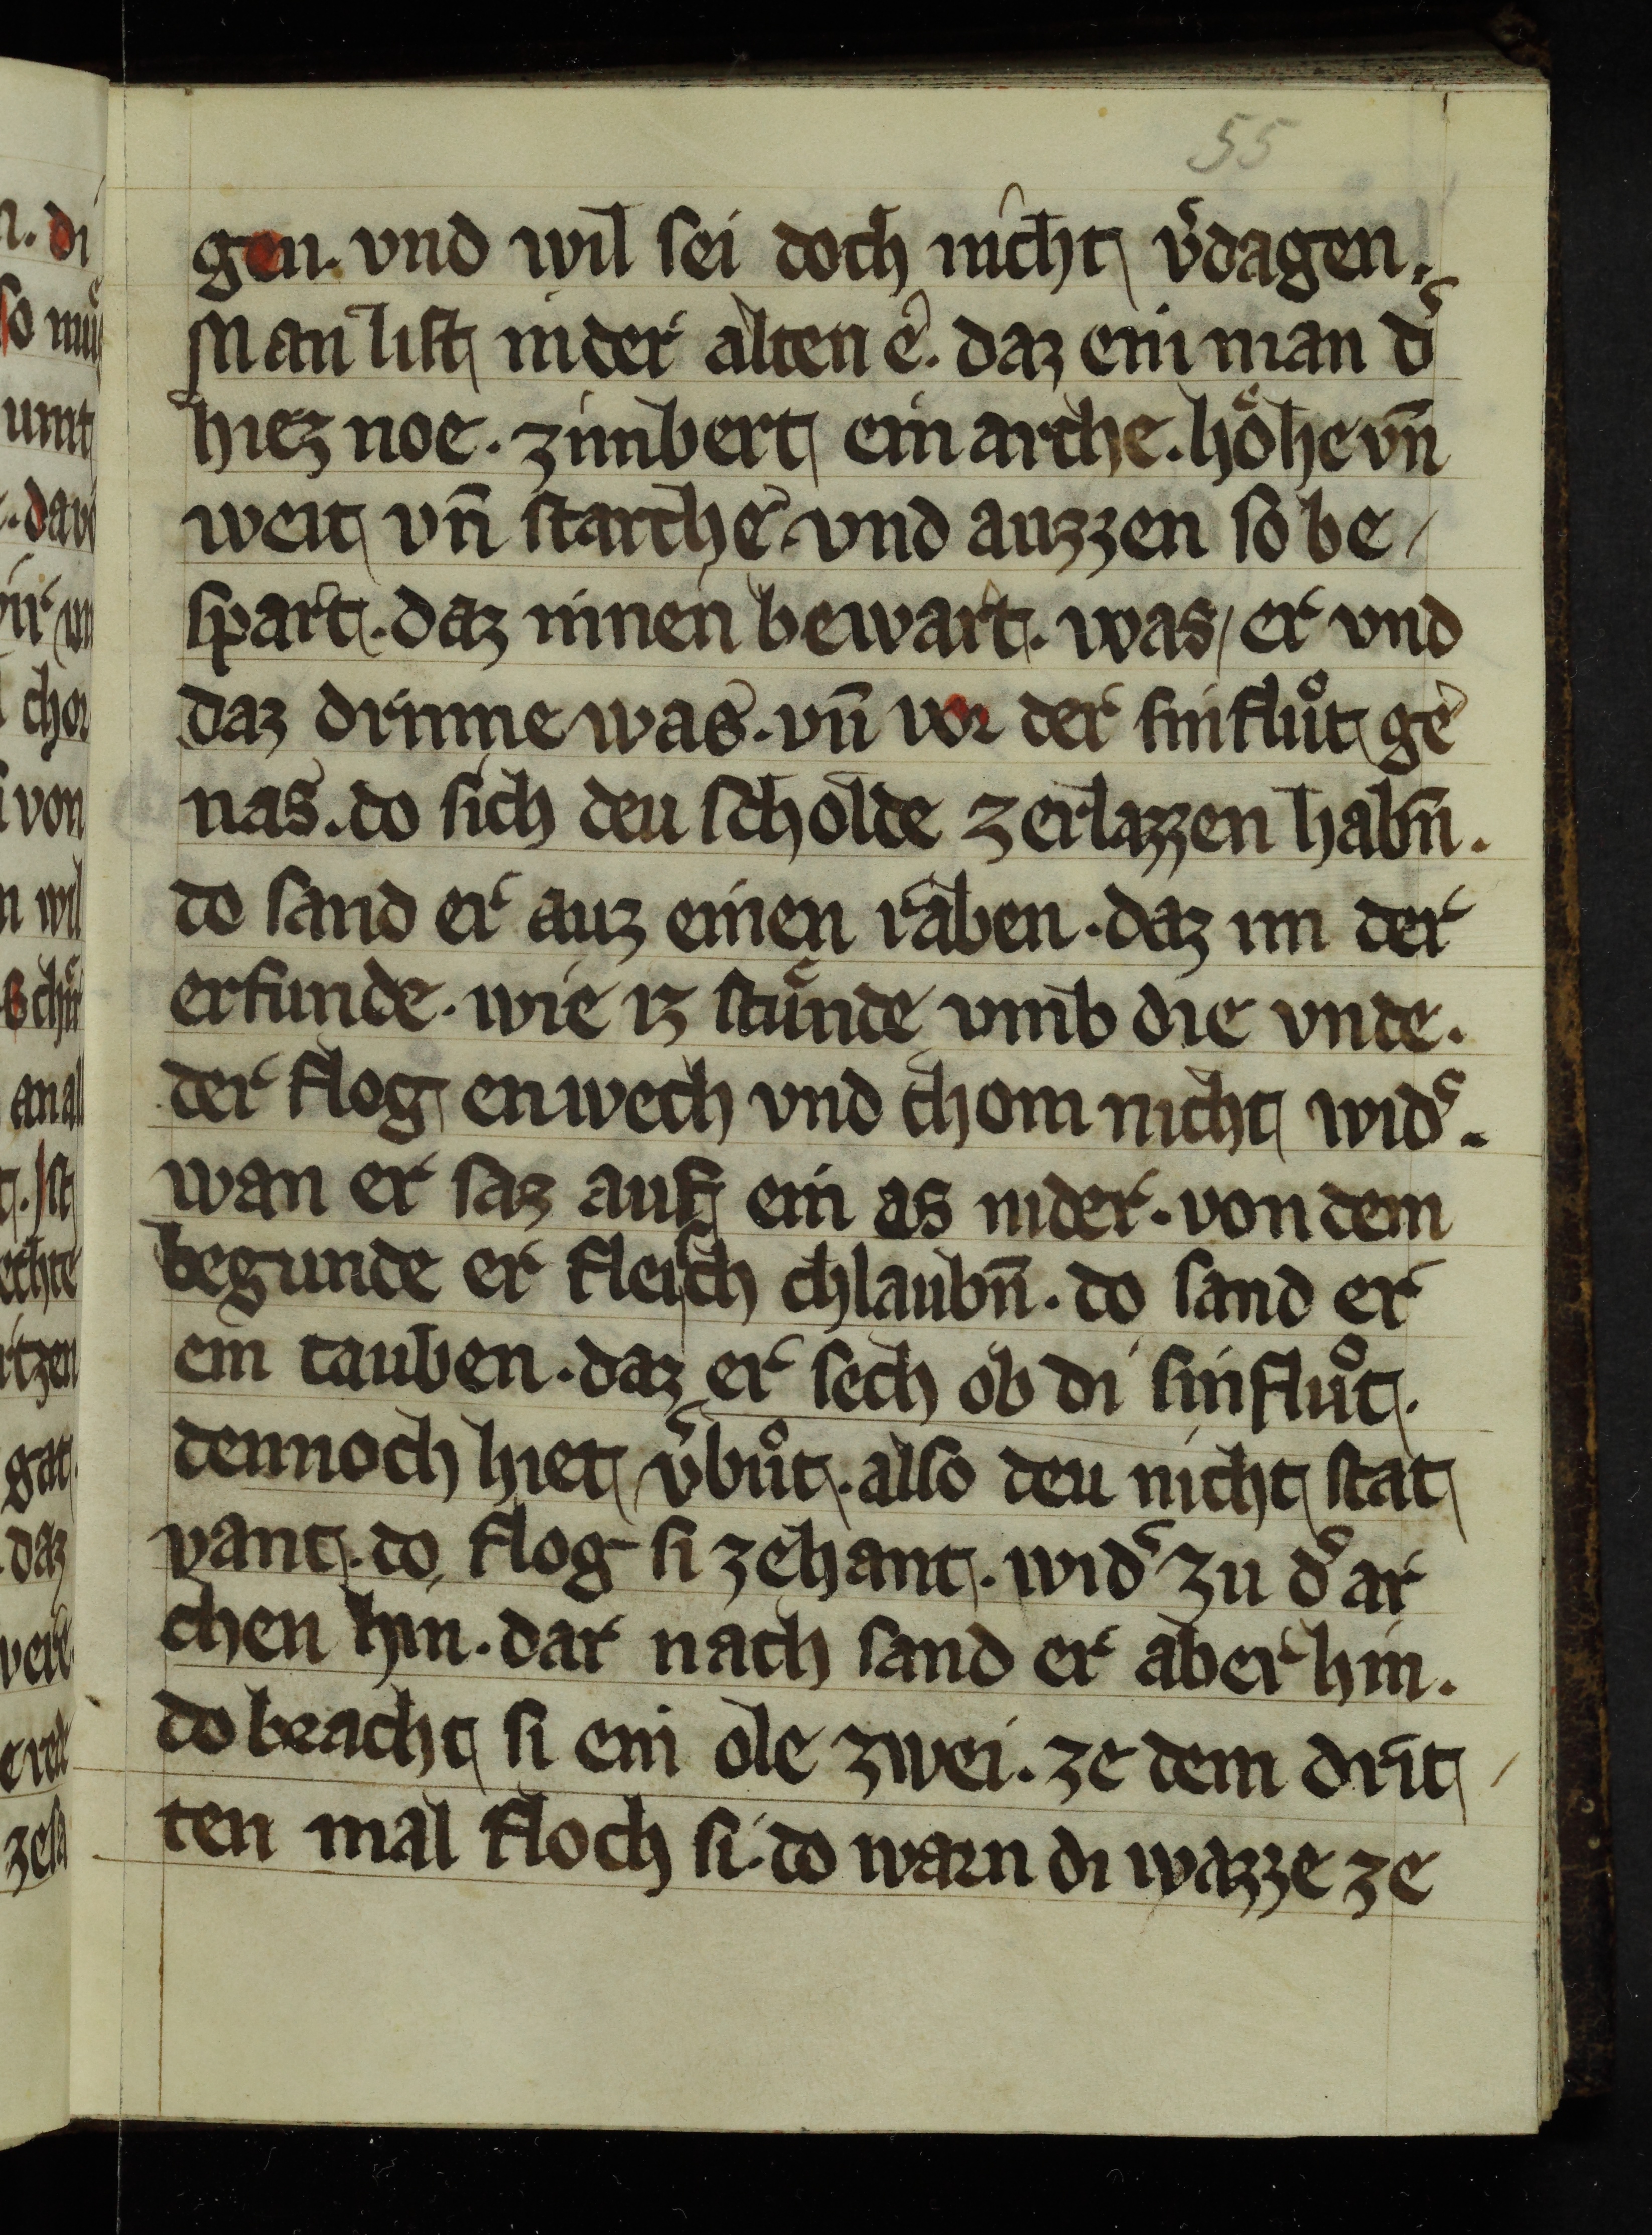 55
gen. vnd wil sei doch nicht v͛dagen.
Man list in der alten e. daz ein man d͛
hiez noe. zimbert ein arche. hoͤhe vn̄
weit vn̄ starche. vnd auzzen so be
spart. daz innen bewart. was er vnd
daz drinne was. vn̄ vor der sinfluͦt ge
nas. do sich deu scholde zerlazzen habn̄.
do sand er auz einen raben. daz im der
erfunde. wie iz stuͤnde vmb die vnde.
der flog enwech vnd chom nicht wid͛.
wan er saz auf ein as nider. von dem
begunde er fleisch chlaubn̄. do sand er
ein tauben. daz er sech ob di sinfluͦt.
dennoch hiet v͛buͦt. also deu nicht stat
vant. do flog si zehant. wid͛ zu d͛ ar
chen hin. dar nach sand er aber hin.
do bracht si ein ole zwei. ze dem drit
ten mal floch si. do warn di wazze ze